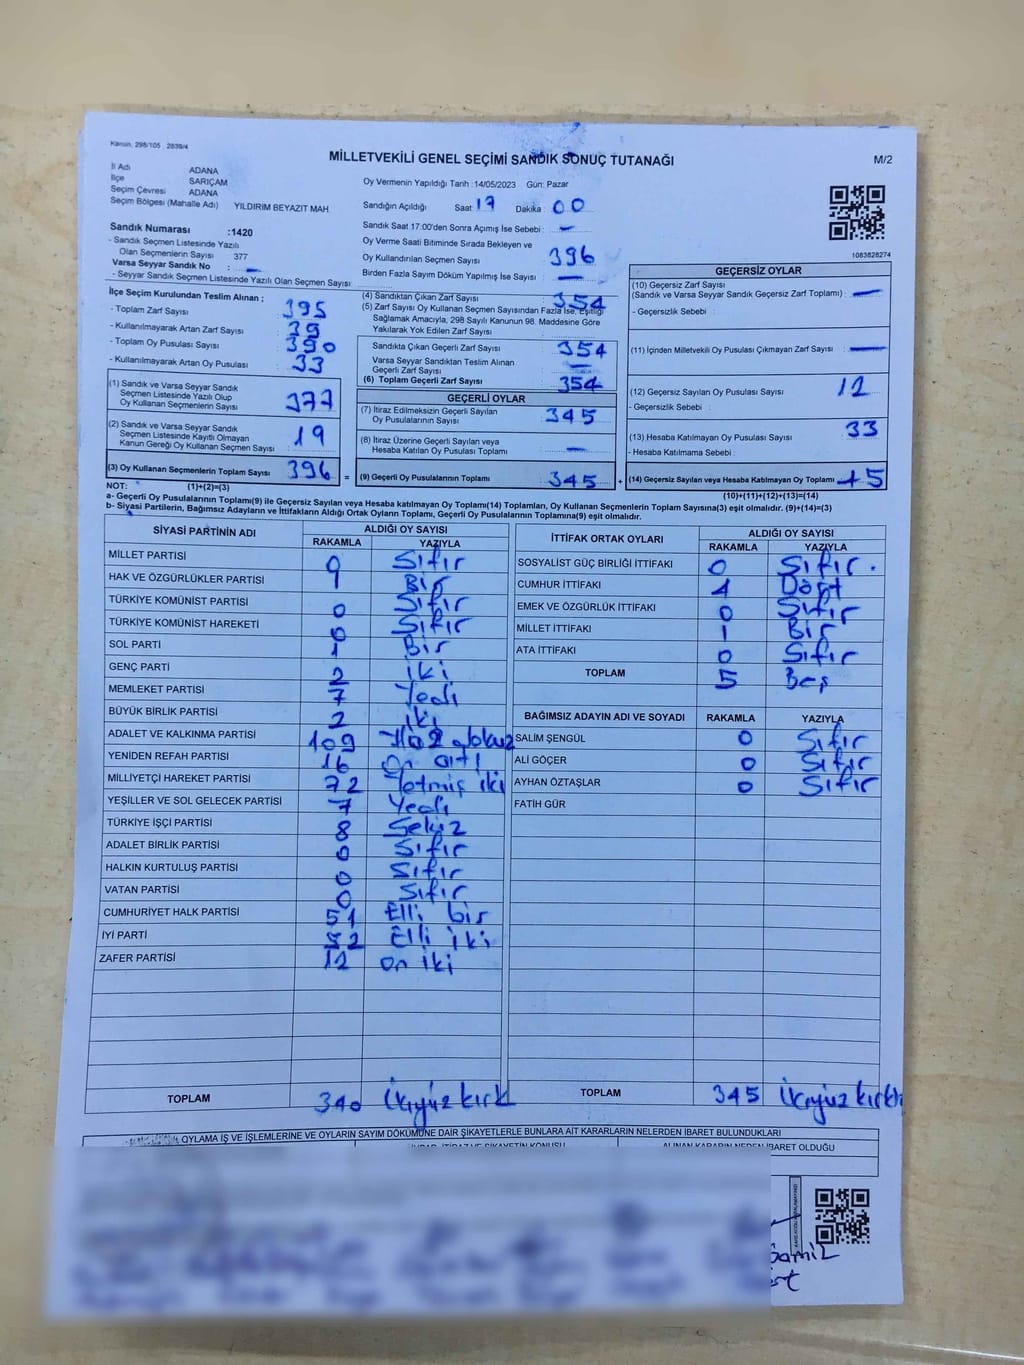 Kanun, 298/105 , 2839/4
MİLLETVEKİLİ GENEL SEÇİMİ SANDIK SONUÇ TUTANAĞI
M/2
İl Adı ADANA
İlçe SARIÇAM
Seçim Çevresi ADANA
Seçim Bölgesi (Mahalle Adı) YILDIRIM BEYAZIT MAH.
Sandık Numarası :1420
- Sandık Seçmen Listesinde Yazılı
Olan Seçmenlerin Sayısı 377
Varsa Seyyar Sandık No : -
- Seyyar Sandık Seçmen Listesinde Yazılı Olan Seçmen Sayısı:
Oy Vermenin Yapıldığı Tarih :14/05/2023 Gün: Pazar
Sandığın Açıldığı Saat 17 Dakika : 00
Sandık Saat 17:00'den Sonra Açımış İse Sebebi : -
Oy Verme Saati Bitiminde Sırada Bekleyen ve
Oy Kullandırılan Seçmen Sayısı 396
Birden Fazla Sayım Döküm Yapılmış İse Sayısı : -
1083628274
İlçe Seçim Kurulundan Teslim Alınan ;
- Toplam Zarf Sayısı 395
- Kullanılmayarak Artan Zarf Sayısı 39
- Toplam Oy Pusulası Sayısı 390
- Kullanılmayarak Artan Oy Pusulası 33
(1) Sandık ve Varsa Seyyar Sandık
Seçmen Listesinde Yazılı Olup
Oy Kullanan Seçmenlerin Sayısı 377
(2) Sandık ve Varsa Seyyar Sandık
Seçmen Listesinde Kayıtlı Olmayan
Kanun Gereği Oy Kullanan Seçmen Sayısı 19
(3) Oy Kullanan Seçmenlerin Toplam Sayısı 396 =
(4) Sandıktan Çıkan Zarf Sayısı 354
(5) Zarf Sayısı Oy Kullanan Seçmen Sayısından Fazla İse, Eşitliği
Sağlamak Amacıyla, 298 Sayılı Kanunun 98. Maddesine Göre
Yakılarak Yok Edilen Zarf Sayısı :
Sandıkta Çıkan Geçerli Zarf Sayısı 354
Varsa Seyyar Sandıktan Teslim Alınan
Geçerli Zarf Sayısı -
(6) Toplam Geçerli Zarf Sayısı 354
GEÇERLİ OYLAR
(7) İtiraz Edilmeksizin Geçerli Sayılan
Oy Pusulalarının Sayısı : 345
(8) İtiraz Üzerine Geçerli Sayılan veya
Hesaba Katılan Oy Pusulası Toplamı : -
(9) Geçerli Oy Pusulalarının Toplamı 345 +
GEÇERSİZ OYLAR
(10) Geçersiz Zarf Sayısı
(Sandık ve Varsa Seyyar Sandık Geçersiz Zarf Toplamı) : -
- Geçersizlik Sebebi :
(11) İçinden Milletvekili Oy Pusulası Çıkmayan Zarf Sayısı : -
(12) Geçersiz Sayılan Oy Pusulası Sayısı : 12
- Geçersizlik Sebebi :
(13) Hesaba Katılmayan Oy Pusulası Sayısı : 33
- Hesaba Katılmama Sebebi :
(14) Geçersiz Sayılan veya Hesaba Katılmayan Oy Toplamı 45
NOT: (1)+(2)=(3)
(10)+(11)+(12)+(13)=(14)
a- Geçerli Oy Pusulalarının Toplamı(9) ile Geçersiz Sayılan veya Hesaba katılmayan Oy Toplamı(14) Toplamları, Oy Kullanan Seçmenlerin Toplam Sayısına(3) eşit olmalıdır. (9)+(14)=(3)
b- Siyasi Partilerin, Bağımsız Adayların ve İttifakların Aldığı Ortak Oyların Toplamı, Geçerli Oy Pusulalarının Toplamına(9) eşit olmalıdır.
SİYASİ PARTİNİN ADI ALDIĞI OY SAYISI
RAKAMLA YAZIYLA
MİLLET PARTİSİ 0 Sıfır
HAK VE ÖZGÜRLÜKLER PARTİSİ 1 Bir
TÜRKİYE KOMÜNİST PARTİSİ 0 Sıfır
TÜRKİYE KOMÜNİST HAREKETİ 0 Sıfır
SOL PARTİ 1 Bir
GENÇ PARTİ 2 iki
MEMLEKET PARTİSİ 7 Yedi
BÜYÜK BİRLİK PARTİSİ 2 iki
ADALET VE KALKINMA PARTİSİ 109
YENİDEN REFAH PARTİSİ 16 On altı
MİLLİYETÇİ HAREKET PARTİSİ 72 Yetmiş iki
YEŞİLLER VE SOL GELECEK PARTİSİ 7 Yedi
TÜRKİYE İŞÇİ PARTİSİ 8 Sekiz
ADALET BİRLİK PARTİSİ 0 Sıfır
HALKIN KURTULUŞ PARTİSİ 0 Sıfır
VATAN PARTİSİ 0 Sıfır
CUMHURİYET HALK PARTİSİ 51 Elli bir
İYİ PARTİ 52 Elli iki
ZAFER PARTİSİ 12 On iki
TOPLAM 340 ikiyüz kırk
İTTİFAK ORTAK OYLARI ALDIĞI OY SAYISI
RAKAMLA YAZIYLA
SOSYALİST GÜÇ BİRLİĞİ İTTİFAKI 0 Sıfır.
CUMHUR İTTİFAKI 4 Dört
EMEK VE ÖZGÜRLÜK İTTİFAKI 0 Sıfır
MİLLET İTTİFAKI 1 Bir
ATA İTTİFAKI 0 Sıfır
TOPLAM 5 Beş
BAĞIMSIZ ADAYIN ADI VE SOYADI RAKAMLA YAZIYLA
SALİM ŞENGÜL 0 Sıfır
ALİ GÖÇER 0 Sıfır
AYHAN ÖZTAŞLAR 0 Sıfır
FATİH GÜR
TOPLAM 345
OYLAMA İŞ VE İŞLEMLERİNE VE OYLARIN SAYIM DÖKÜMÜNE DAİR ŞİKAYETLERLE BUNLARA AİT KARARLARIN NELERDEN İBARET BULUNDUKLARI
ALINAN KARARIN NEDEN İBARET OLDUĞU